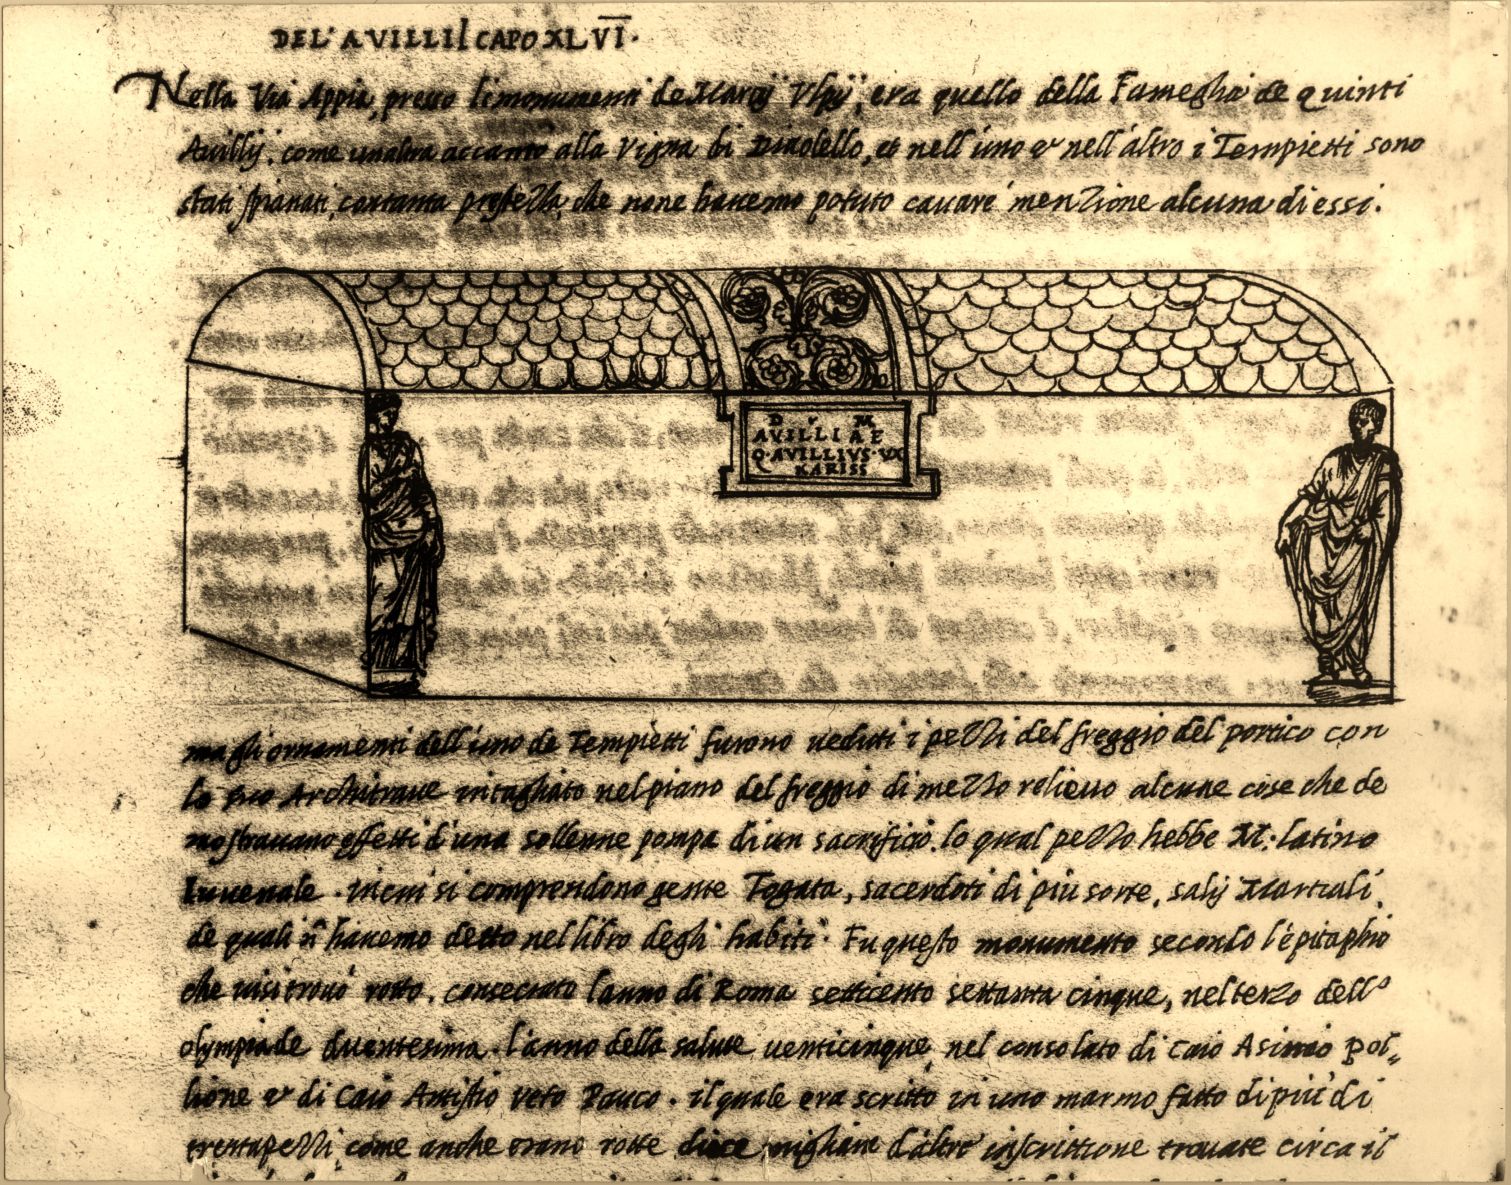 DEL'AVILLII CAPO XLVI.
Nella Via Appia, presso li monumenti de Marcij Vlpij, era quello della Fameglia de quinti
Auillij. come unaltra accanto alla Vigna di Diaolello, et nell'uno & nell'altro i Tempietti sono
stati spianati, contanta prestezza, che none hauemo potuto cauare menzione alcuna di essi.
D M
AVILLIAE
Q·AVILLIVS·VX
KARISS
ma gli ornamenti dell'uno de Tempietti furono ueduti i pezzi del freggio del portico con
lo suo Architraue intagliato nel piano del freggio di mezzo relieuo alcune cose che de
mostrauano effetti d'una sollenne pompa di un sacrificio. lo qual pezzo hebbe M. latino
Iuuenale. incui si comprendono gente Togata, sacerdoti di piu sorte, salij Martiali,
de quali n hauemo detto nel libro degli habiti. Fu questo monumento secondo l'epitaphio
che uisi trouò rotto. consecrato l'anno di Roma settecento settanta cinque, nel terzo dell
olympiade duentesima. l'anno della salute uenticinque, nel consolato di Caio Asinio Pol-
lione & di Caio Antistio Veto Pauco. il quale era scritto in uno marmo fatto di più di
trenta pezzi, come anche erano rotte migliara d'altre inscrittione trouate circa il